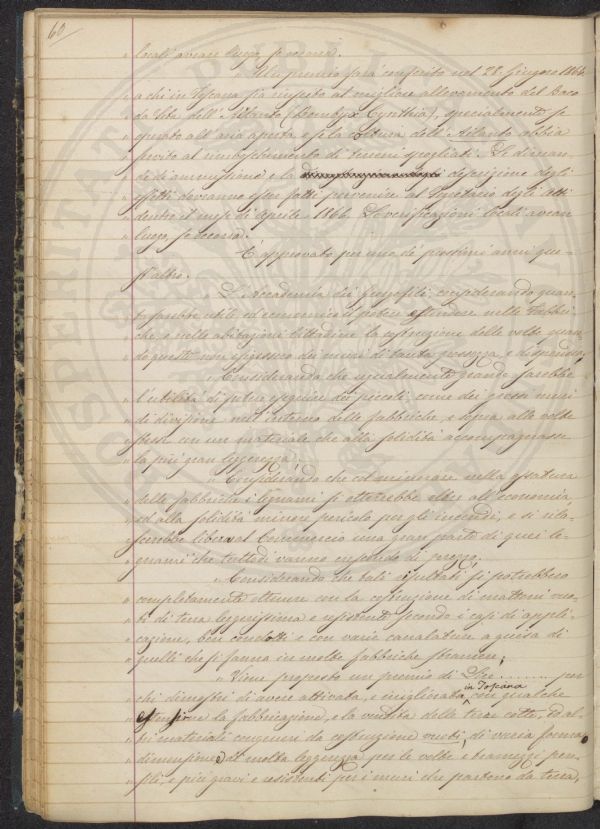 60
" locali avran luogo, se occorre.
" " Un premio sarà conferito nel 28. Giugno 1866
" a chi in Toscana sia riuscito al migliore allevamento del Baco
" da Seta dell'Ailanto (Bombyx Cynthia), specialmente se
" operato all'aria aperta, e se la coltura dell'Ailanto abbia
" servito al rimboschimento di terreni spogliati. Le diman-
" de di ammissione e la descrizione degli
" effetti dovranno esser fatti pervenire al Segretario degli Atti
" dentro il mese di Aprile 1866. Le verificazioni locali avran
" luogo, se occorra.
È approvato per uno de' prossimi anni que-
st'altro.
" L'Accademia dei Georgofili, considerando quan-
" to sarebbe utile ed economico il potere estendere nelle Fabbri-
" che, e nelle abitazioni cittadine la costruzione delle volte quan-
" do queste non esigessero dei muri di tanta grossezza, e dispendio;
" " Considerando che ugualmente grande sarebbe
" l'utilità di potere eseguire dei piccoli, come dei grossi muri
" di divisione nell'interno delle fabbriche, e sopra alle volte
" stesse con un materiale che alla solidità accompagnasse
" la più gran leggerezza;
" " Considerando che col minorare nella ossatura
" delle fabbriche i legnami si otterrebbe oltre all'economia,
" ed alla solidità minore pericolo per gli incendi, e si rila-
" scerebbe libera al Commercio una gran parte di quei le-
" gnami che tuttodì vanno crescendo di prezzo;
" " Considerando che tali resultati si potrebbero
" completamente ottenere con la costruzione di mattoni vuo-
" ti di terra leggerissima e resistente secondo i casi di appli-
" cazione, ben condotti e con varie canalature a guisa di
" quelli che si fanno in molte fabbriche straniere;
" " Viene proposto un premio di Lire ........ per
" chi dimostri di avere attivata, e migliorata in Toscana con qualche
" estensione la fabbricazione, e la vendita delle terre cotte, ed al-
" tri materiali congeneri da costruzione vuoti, di varia forma,
" dimensione, di molta leggerezza per le volte e tramezzi pen-
" sili, e più gravi e resistenti per i muri che partono da terra,